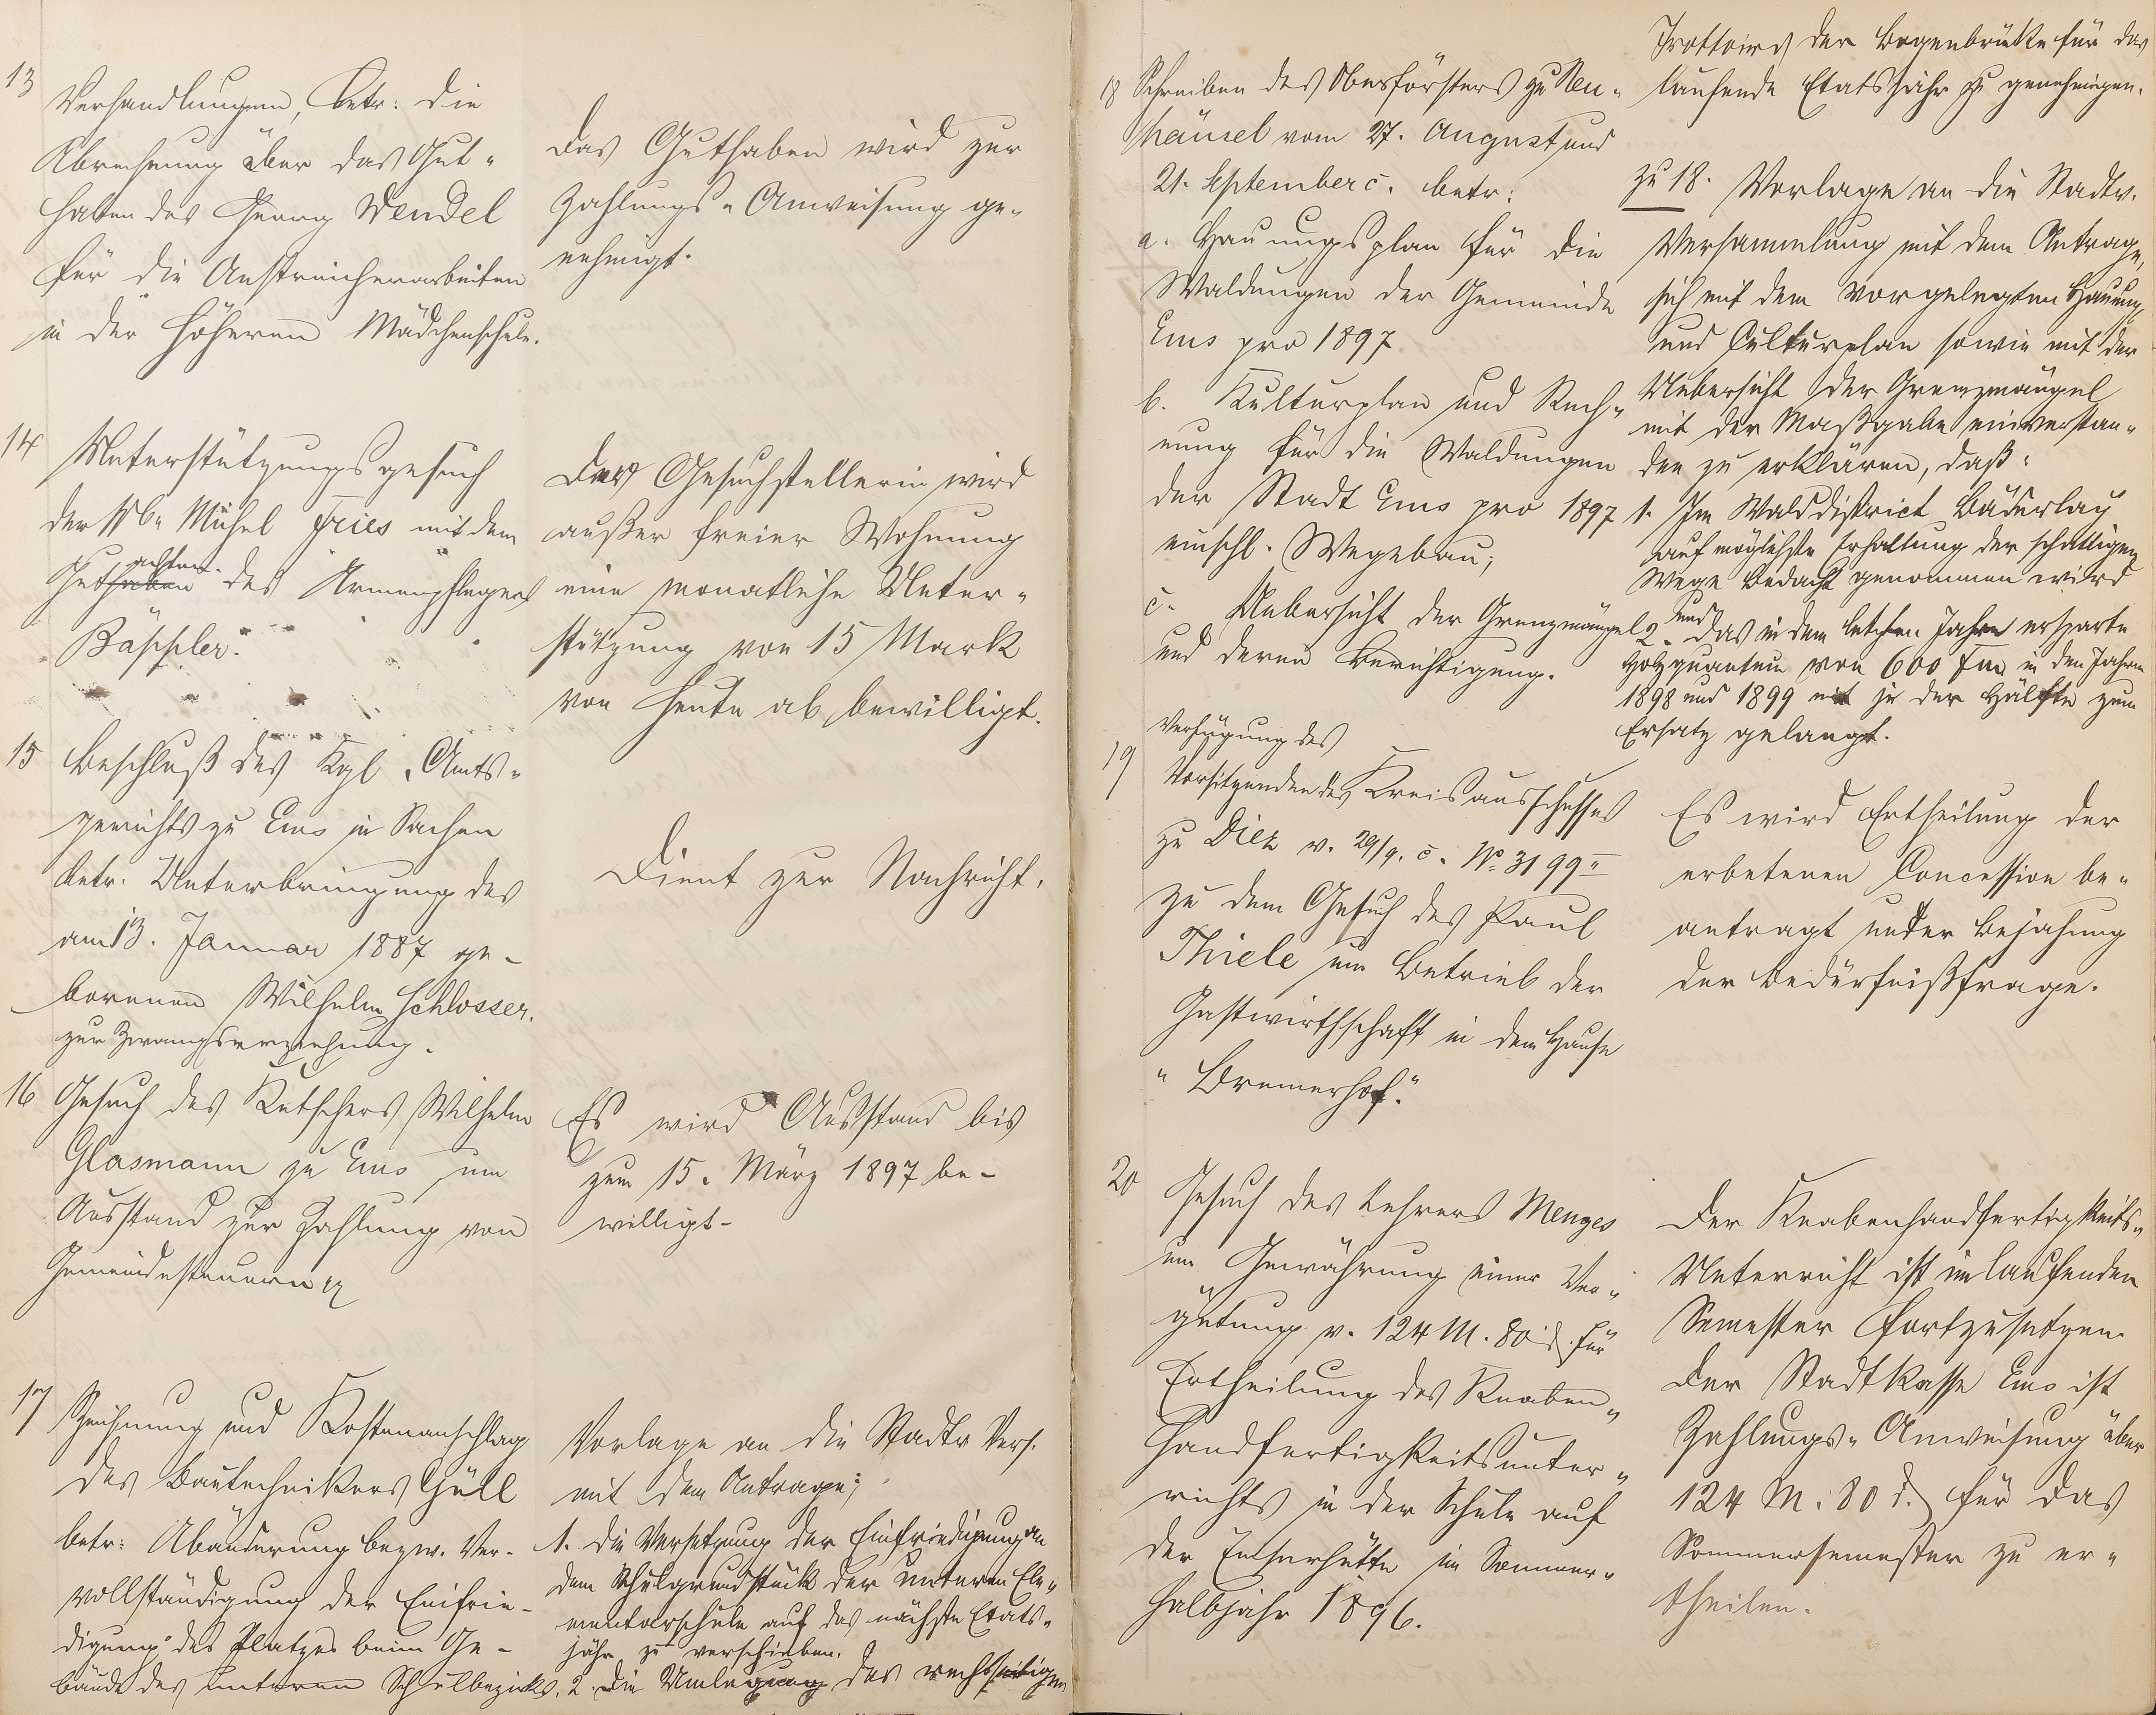 13
Verhandlungen, betr: die
Abrechnung über das Gut-
haben des Georg Wendel
für die Anstreicherarbeiten
in der höheren Mädchenschule.
Das Guthaben wird zur
Zahlungs-Anweisung ge-
nehmigt.
14
Unterstützungsgesuch
der Wb. Michel Fries mit dem
achten.
Guthaben des Armenpflegers
Bäppler.
Der Gesuchstellerin wird
außer freier Wohnung
eine monatliche Unter-
stützung von 15 Mark
von heute ab bewilligt.
15
Beschluß des Kgl. Amts-
gerichts zu Ems in Sachen
betr. Unterbringung des
am 13. Januar 1887 ge-
borenen Wilhelm Schlosser.
zur Zwangserziehung.
Dient zur Nachricht.
16
Gesuch des Kutschers Wilhelm
Glasmann zu Ems um
Ausstand zur Zahlung von
Gemeindesteuern
Es wird Ausstand bis
zum 15. März 1897 be-
willigt.
17
Zeichnung und Kostenanschlag
des Bautechnikers Güll
betr: Abänderung bezw. Ver-
vollständigung der Einfrie-
digung des Platzes beim Ge-
bäude des unteren Schulbezirks.
Vorlage an die Stadtv Vers.
mit dem Antrage;
1. die Versetzung der Einfriedigung an
dem Schulgrundstück der unteren Ele-
mentarschule auf das nächste Etats-
jahr zu verschieben.
2. die Umlegung des rechtsseitigen
Trottoirs der Bogenbrücke für das
laufende Etatsjahr zu genehmigen.
18
Schreiben des Oberförsters zu Neu-
häusel vom 27. August und
21. September c. betr:
a. Hauungsplan für die
Waldungen der Gemeinde
Ems pro 1897
b. Kulturplan und Rech-
nung für die Waldungen
der Stadt Ems pro 1897
einschl. Wegebau;
c. Uebersicht der Grenzmängel
und deren Berichtigung.
zu 18. Vorlage an die Stadtv.
Versammlung mit dem Antrage,
sich mit dem vorgelegten Hauungs
und Culturplan sowie mit der
Uebersicht der Grenzmängel
mit der Maßgabe einverstan-
den zu erklären, daß:
1. Im Walddistrict Bäderlay
auf möglichste Erhaltung der schattigen
Wege Bedacht genommen wird
und
2. das in dem letzten Jahre ersparte
Holzquantum von 600 Fm in den Jahren
1898 und 1899 mit je der Hälfte zum
Ersatz gelangt.
19
Verfügung des
Vorsitzenden des Kreisausschusses
zu Diez v. 29/9. c. No 3199 II
zu dem Gesuch des Paul
Thiele um Betrieb der
Gastwirthschaft in dem Hause
"Bremerhof."
Es wird Ertheilung der
erbetenen Concession be-
antragt unter Bejahung
der Bedürfnißfrage.
20
Gesuch des Lehrers Menges
um Gewährung einer Ver-
gütung v. 124 M. 80 d. für
Ertheilung des Knaben-
handfertigkeitsunter-
richts in der Schule auf
der Emserhütte im Sommer-
halbjahr 1896.
Der Knabenhandfertigkeits-
Unterricht ist im laufenden
Semester fortzusetzen.
Der Stadtkasse Ems ist
Zahlungs-Anweisung über
124 M. 80 d. für das
Sommersemester zu er-
theilen.